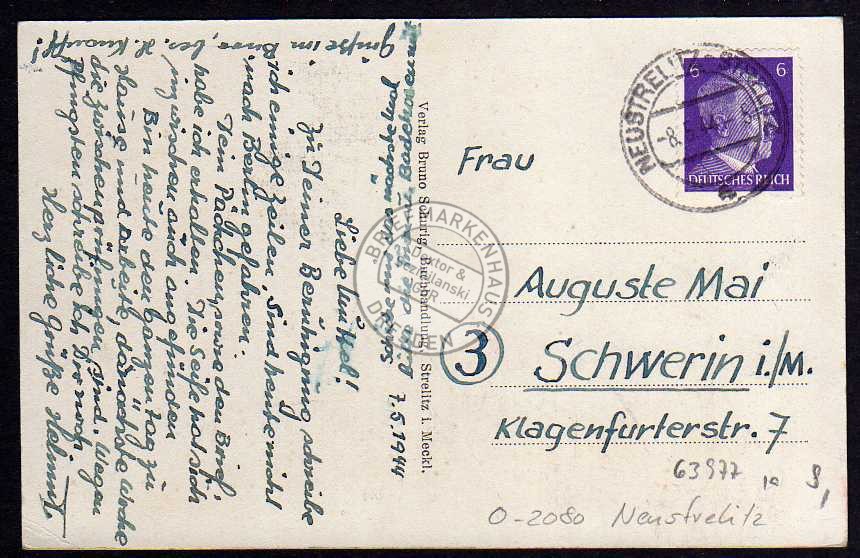 7.5.1944
Liebe
zu Deiner Beruhigung schreibe
ich einige Zeilen. Sind heute nicht
nach Berlin gefahren.
Dein Päckchen, sowie den Brief
habe ich erhalten. Die Seife hat sich
inzwischen auch angefunden
Bin heute den ganzen Tag zu
Hause und arbeite, da nächste Woche
die Zwischenprüfungen sind. Wegen
Pfingsten schreibe ich Dir noch
Herzliche Grüße Helmut.
Grüße im
Verlag Bruno Schurig, Buchhandlung, Strelitz i. Meckl.
Frau
Auguste Mai
3
Schwerin i./M.
Klagenfurterstr. 7
NEUSTRELITZ-STRELITZ
-8.5.44
6 6
DEUTSCHES REICH
BRIEFMARKENHAUS
Doktor &
GbR
DRESDEN
63977
O-2080 Neustrelitz